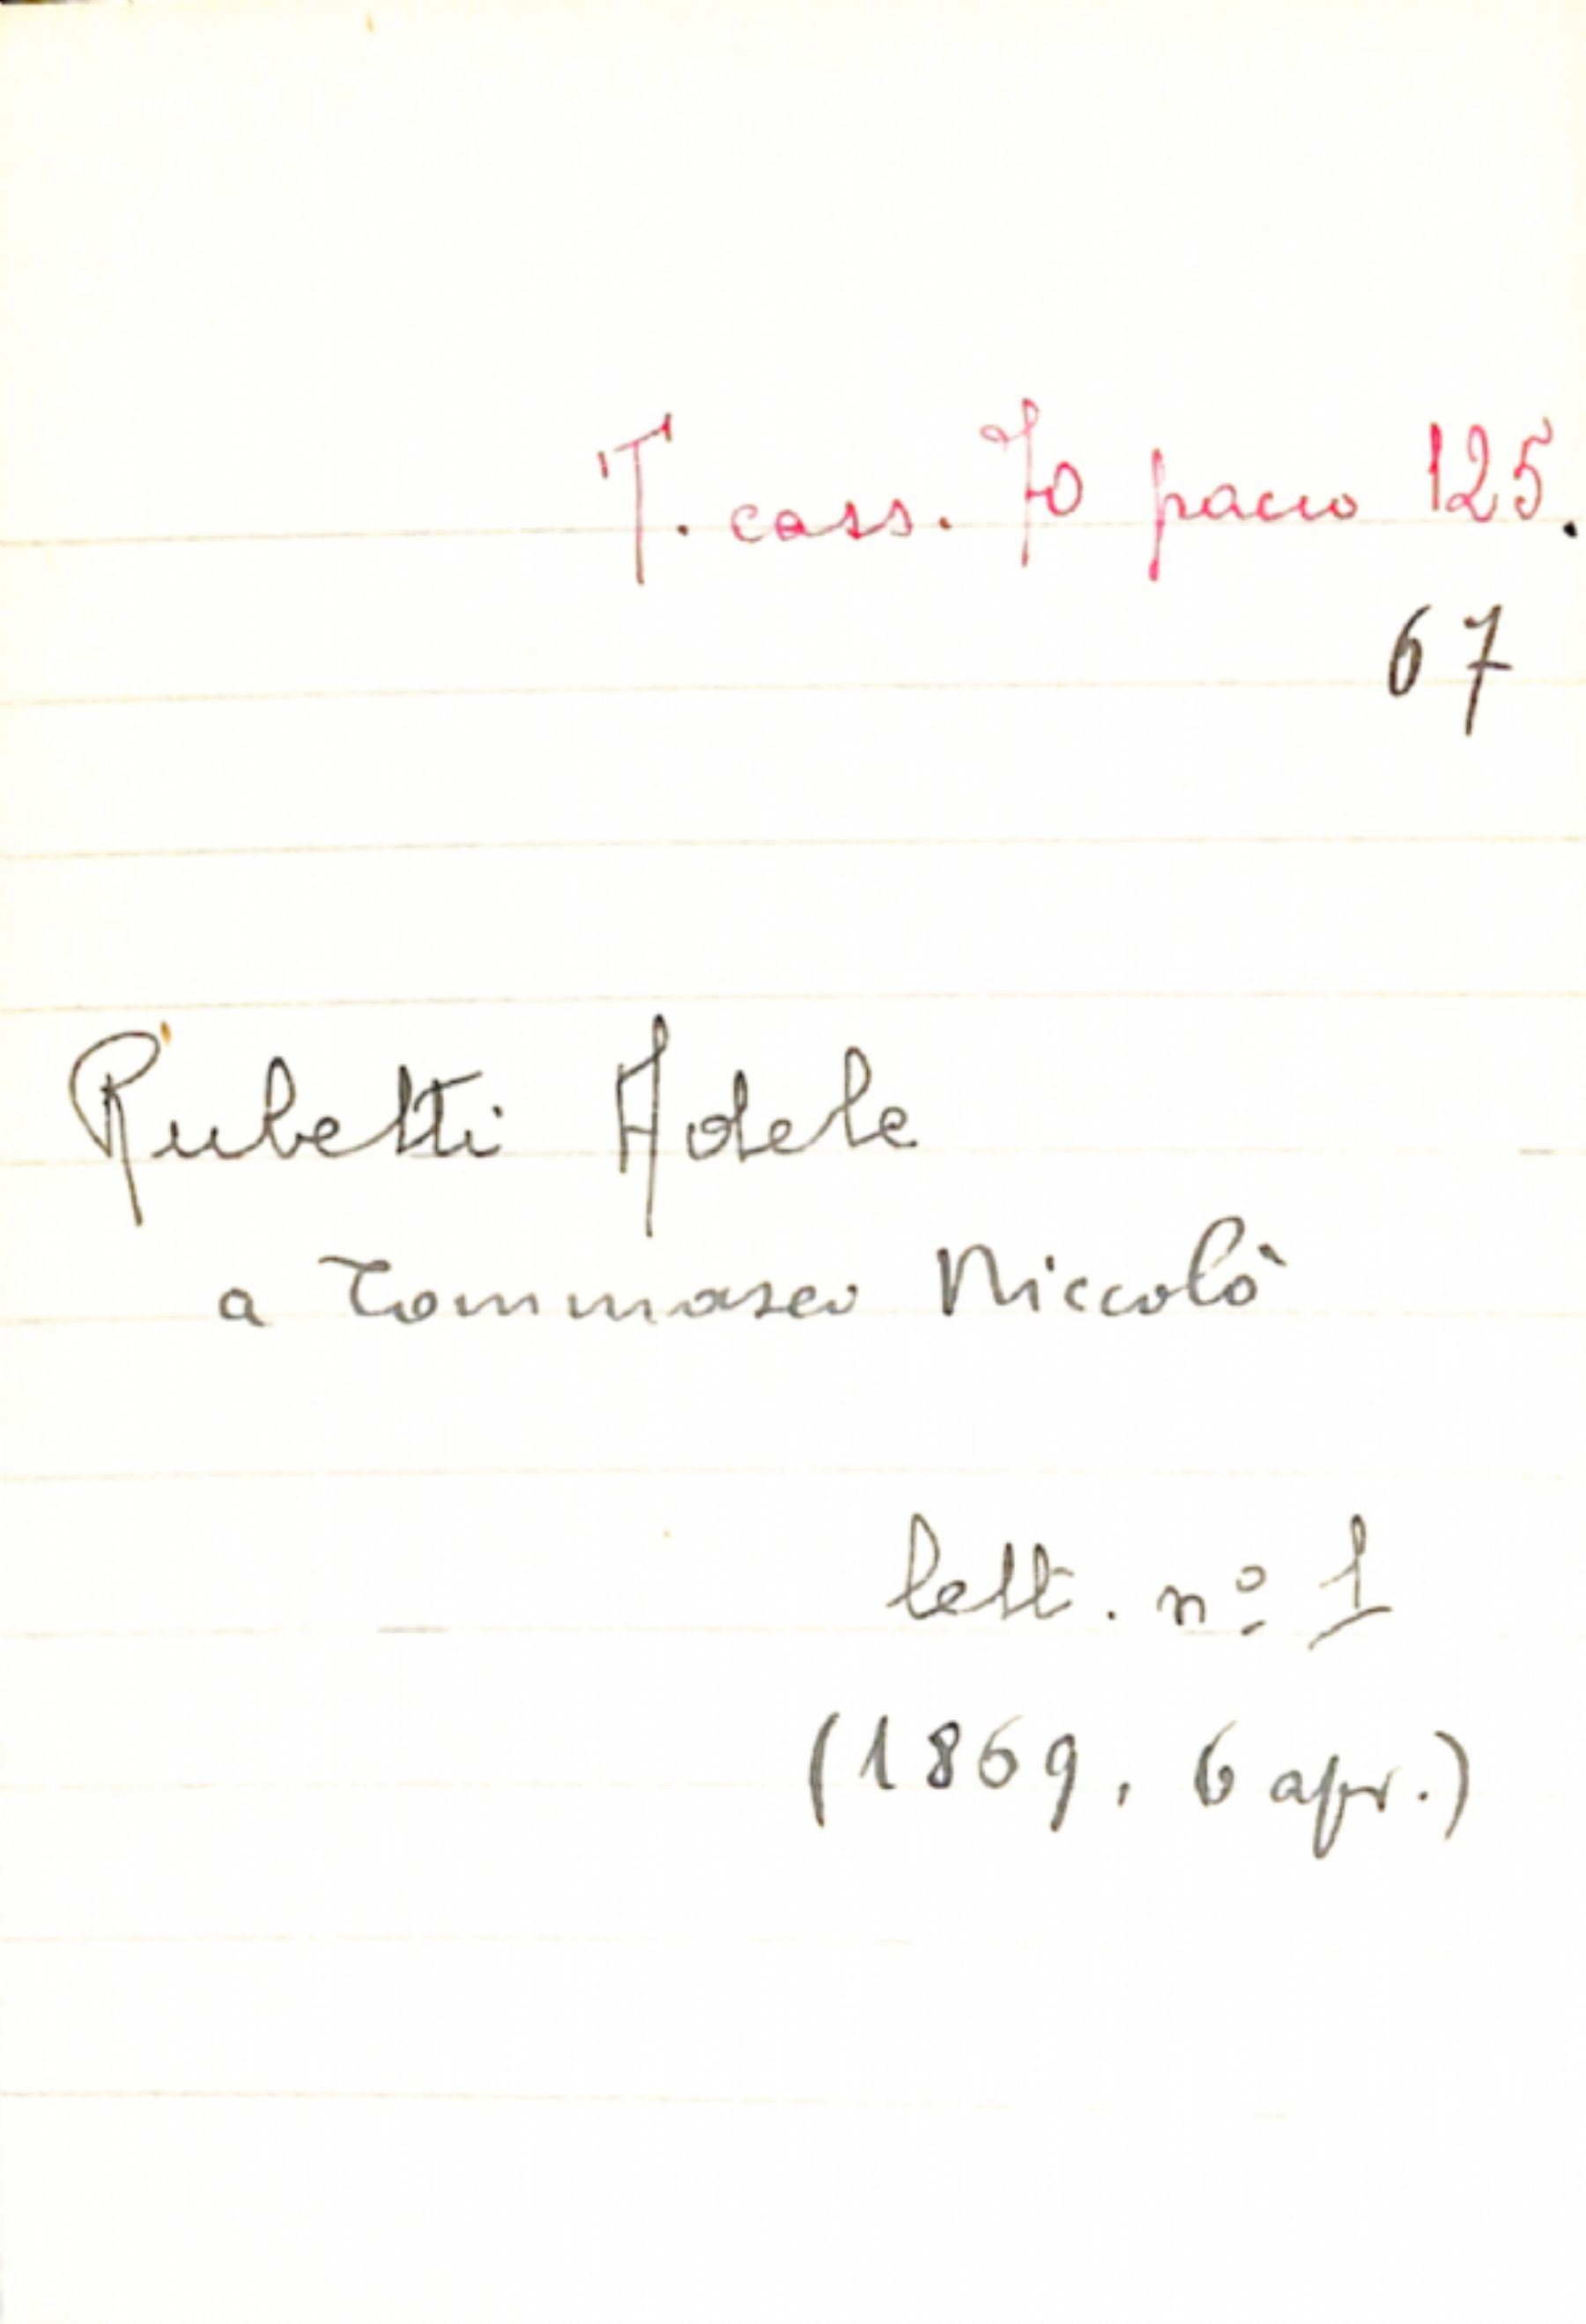 T. cass. 70 pacco 125.
67
Rubetti Adele
a Tommaseo Niccolò
lett. nº 1
(1869, 6 apr.)